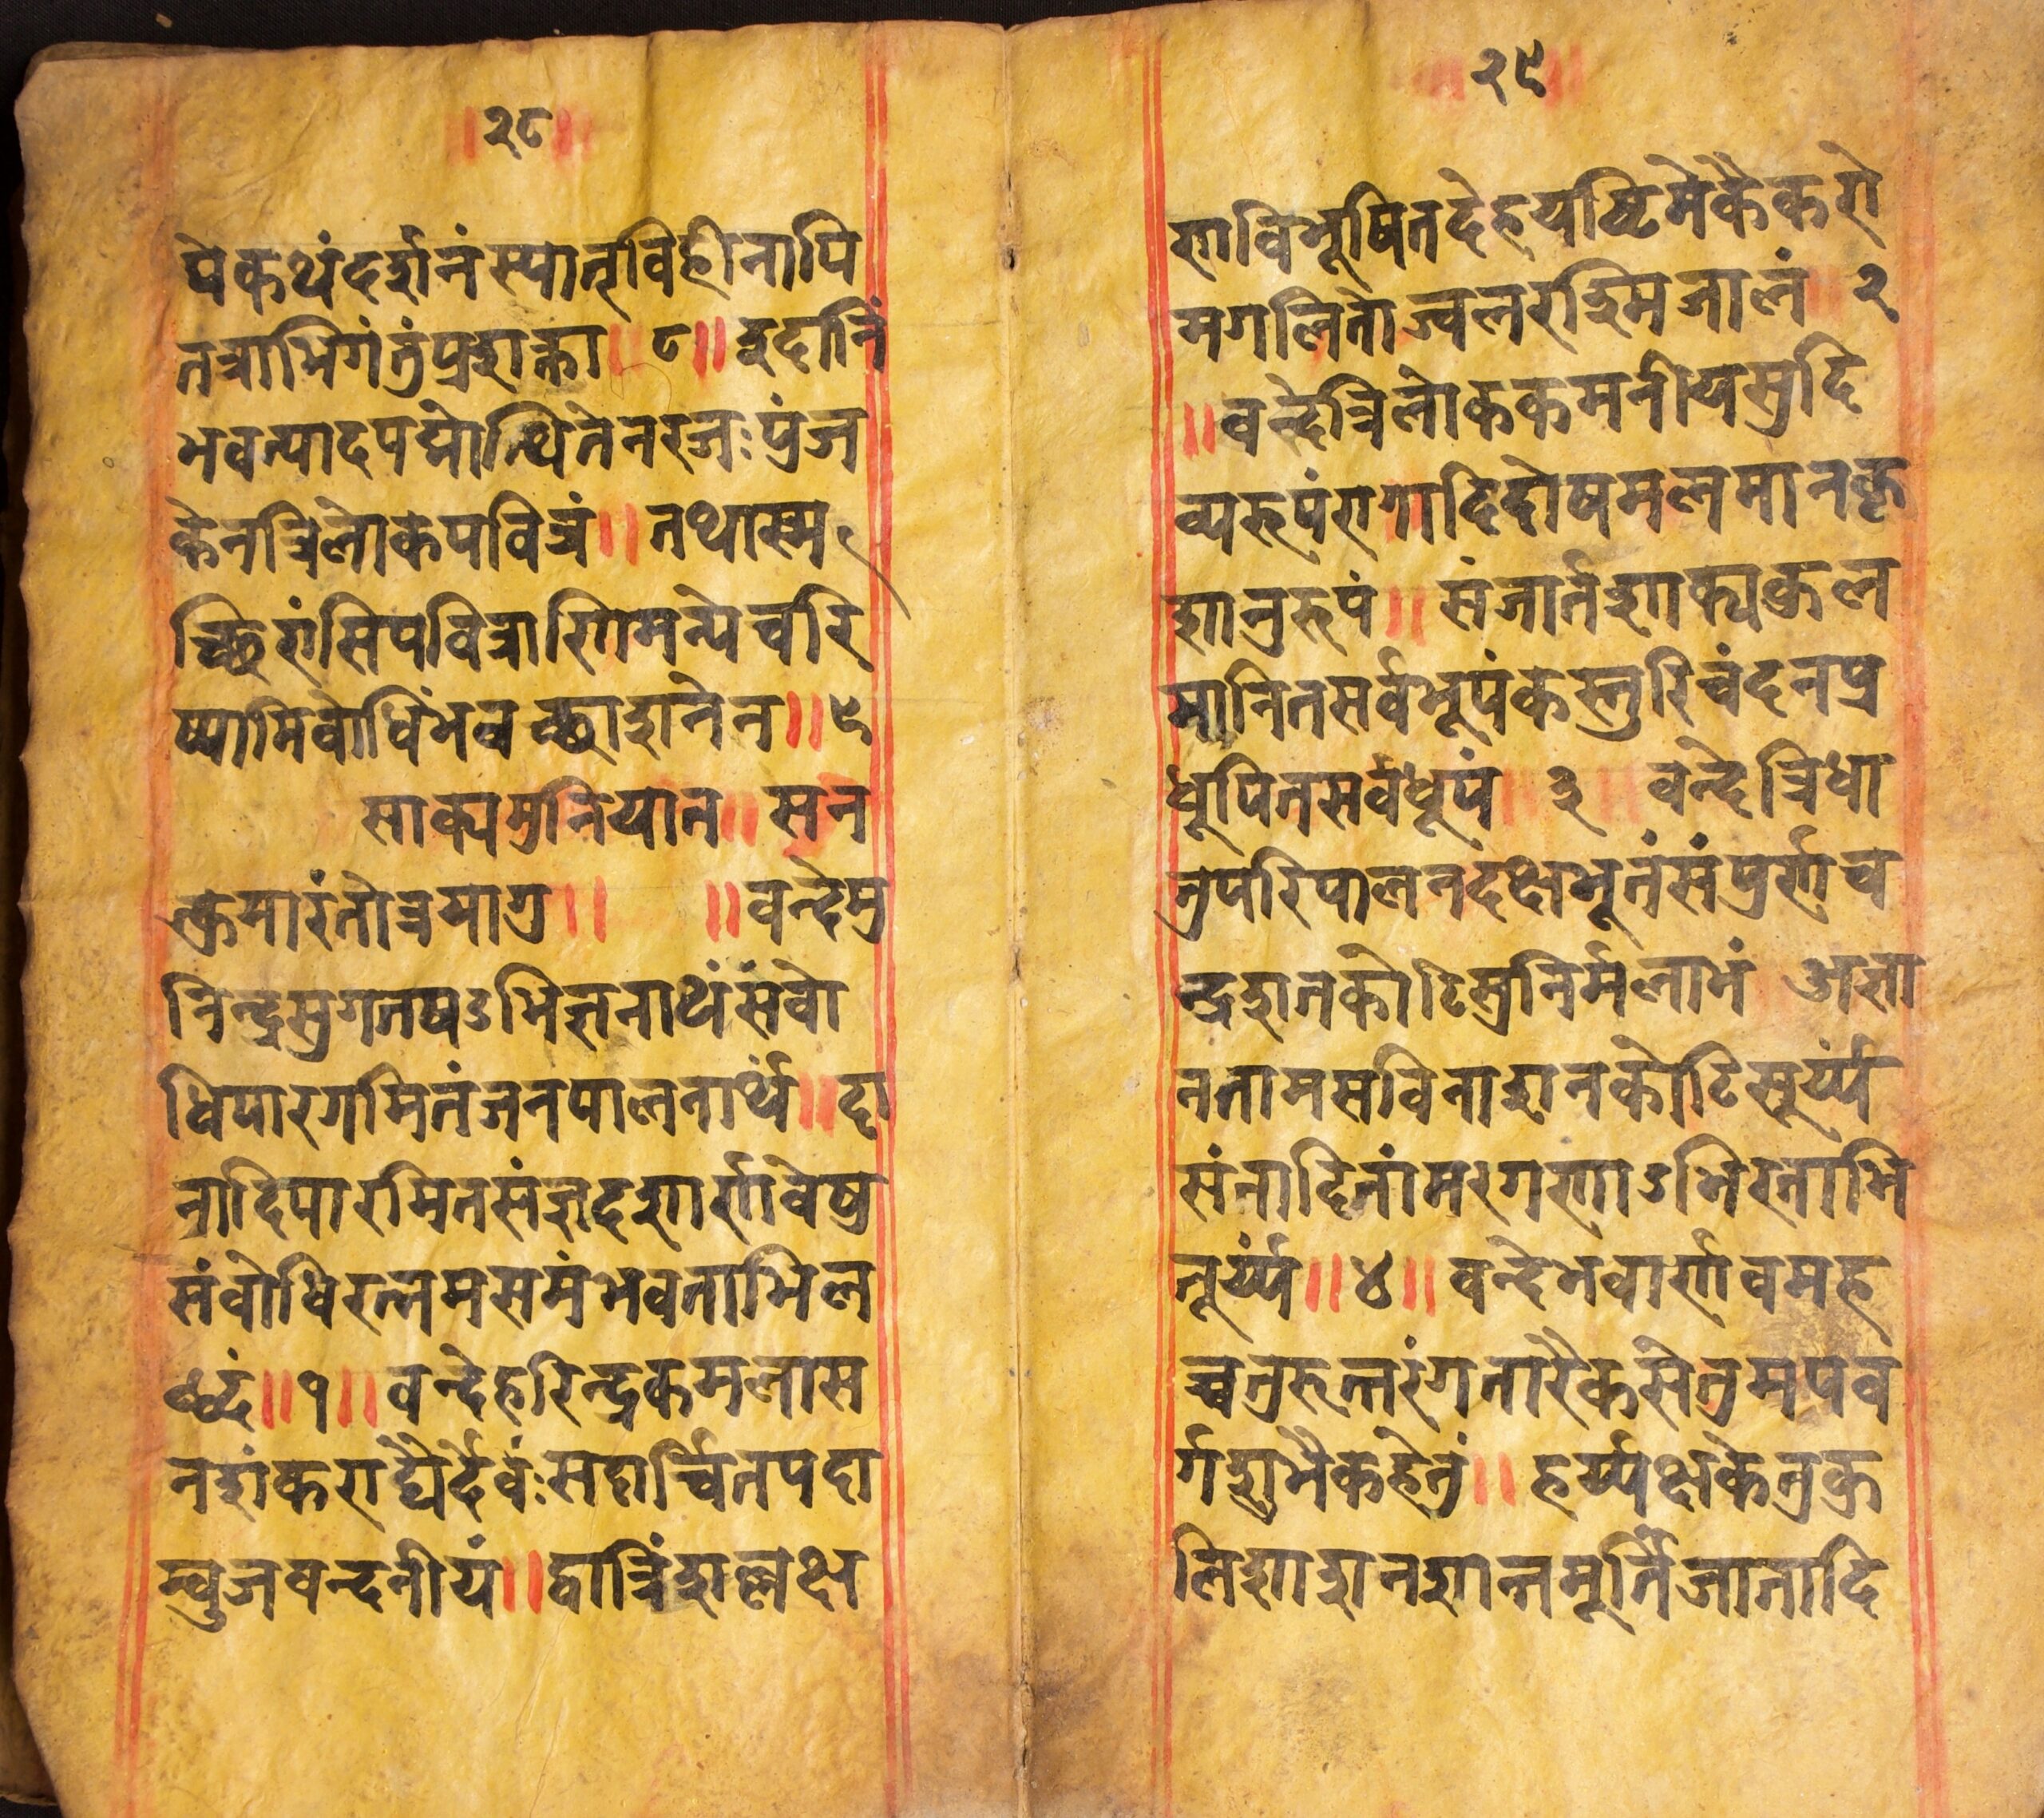 २८
पेकथंदर्शनंस्यात्नृविहीनापि
तत्राभिगंतुंप्रशक्ता ८॥ इदानिं
भवत्पादपद्मोत्थितेनरजःपुंज
केनत्रिलोकेपवित्रं॥ तथास्म
च्छिरांसिपवित्राणिमन्येचरि
ष्यामिवोधिंभवच्छाशनेन॥९
साक्यमुनियात॥ सन
त्कुमारंतोत्रयाग्रु॥ ॥वन्देमु
निन्द्रसुगतषऽभिज्ञनाथंसंवो
धिपारगमितंजनपालनार्थं॥दा
नादिपारमितसंज्ञदशार्णवेषु
संवोधिरत्नमसमंभवताभिल
ब्धं॥१॥वन्देहरिन्द्रकमलास
नशंकराद्यैर्देवैःसदार्चितपदा
म्वुजवन्दनीयं॥द्वात्रिंशल्लक्ष
२९
णविभूषितदेहयष्टिमेकैकरो
मगलितोज्वलरश्मिजालं २
॥वन्देत्रिलोककमनीयसुदि
व्यरूपंरागादिदोषमलमानकृ
शानुरूपं॥ संजार्तशाक्यकुल
मानितसर्वभूपंकस्तुरिचंदनप्र
धूपितसर्वधूपं ३ वन्देत्रिधा
तुपरिपालनदक्षभूतंसंपुर्णच
न्द्रशतकोटिसुनिर्मलाभं अज्ञा
नतामसविनाशनकोटिसूर्य्यं
संनादितांमरगणाऽभिरुताभि
तूर्य्यं॥४॥वन्देभवार्णवमह
च्चतुरुत्तरंगतारैकसेतुमपव
र्गशुभैकहेतुं॥हर्य्यक्षकेतुकु
लिशाशनशान्तमूर्त्तिंजातादि